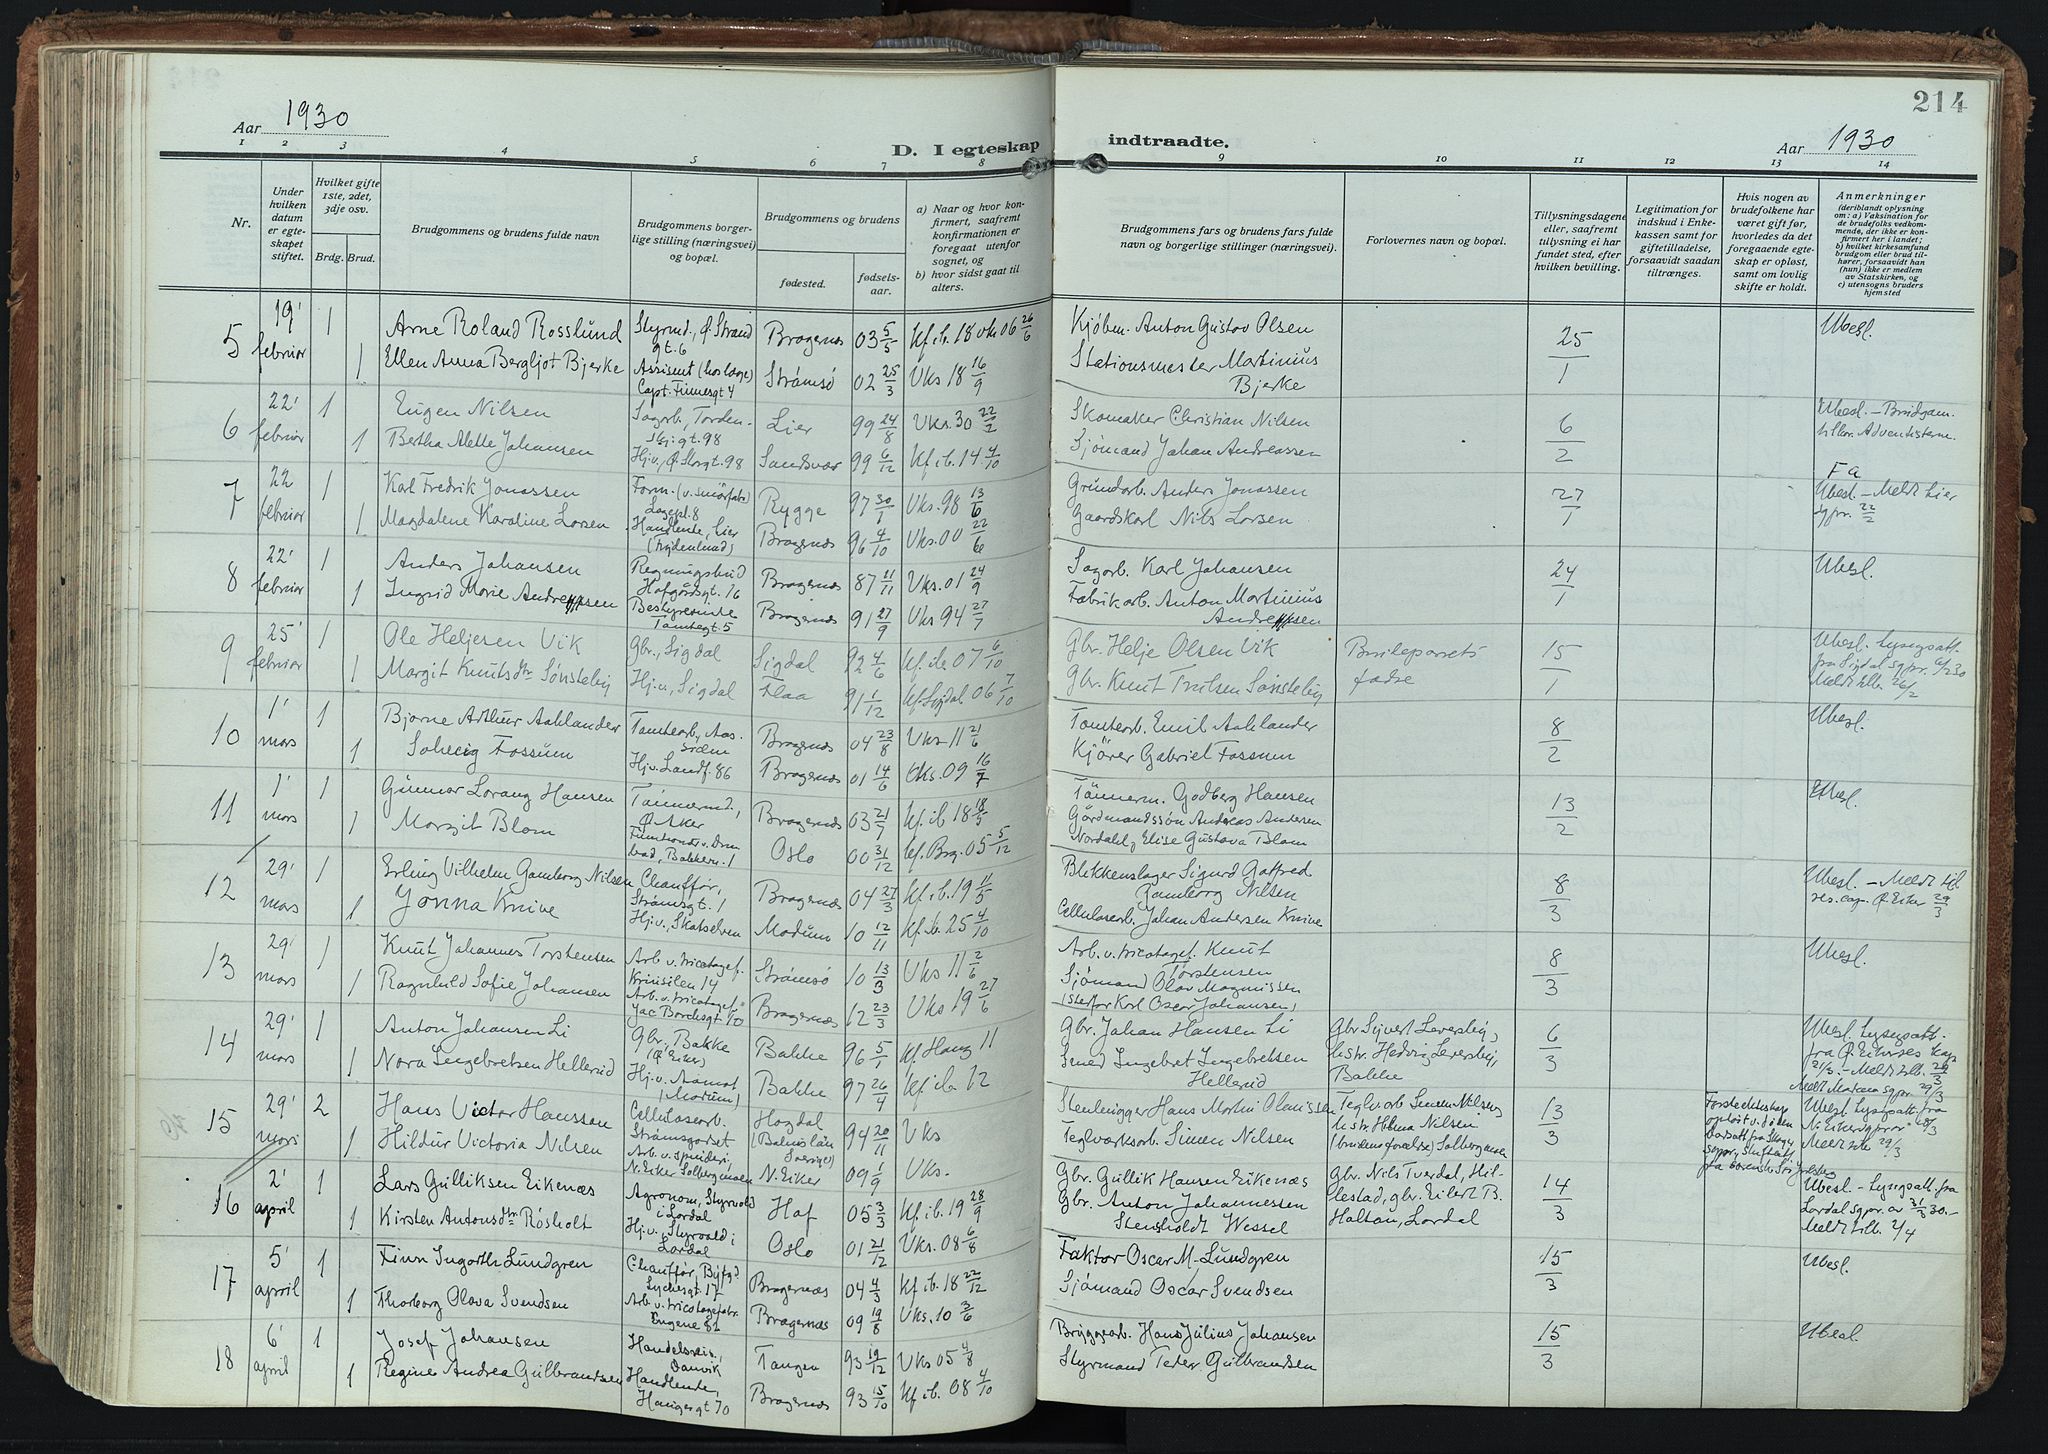 214
Aar 1930
Aar 1930
D. I egteskap indtraadte.
1 2 3 4 5 6 7 8 9 10 11 12 13 14
Nr.
Under hvilken datum er egteskapet stiftet.
Hvilket gifte 1ste, 2det, 3dje osv.
Brdg. Brud.
Brudgommens og brudens fulde navn
Brudgommens borgerlige stilling (næringsvei) og bopæl.
Brudgommens og brudens
fødested. fødselsaar.
a) Naar og hvor konfirmert, saafremt konfirmationen er foregaat utenfor sognet, og
b) hvor sidst gaat til alters.
Brudgommens fars og brudens fars fulde navn og borgerlige stillinger (næringsvei).
Forlovernes navn og bopæl.
Tillysningsdagene eller, saafremt tillysning ei har fundet sted, efter hvilken bevilling.
Legitimation for indskud i Enkekassen samt for giftetilladelse, forsaavidt saadan tiltrænges.
Hvis nogen av brudefolkene har været gift før, hvorledes da det foregaaende egteskap er opløst, samt om lovlig skifte er holdt.
Anmerkninger
(deriblandt oplysning om: a) Vaksination for de brudefolks vedkommende, der ikke er konfirmert her i landet;
b) hvilket kirkesamfund brudgom eller brud tilhører, forsaavidt han (hun) ikke er medlem av Statskirken, og
c) utensogns bruders hjemsted
5 19' februar 1 Arne Roland Rosslund Styrmd, Ø. Strandgt. 6 Bragernes 03 5/5 Kf. ib. 18 vks 06 26/6 Kjøbm. Anton Gustav Olsen 25/1 Ubesl.
1 Ellen Anna Bergljot Bjerke Assistent Capt. Finnesgt 4 Strømsø 02 25/3 Vks 18 16/9 Stationsmester Martinius Bjerke
6 22' februar 1 Eugen Nilsen Sagarb., Tordenskj.gt. 98 Lier 99 24/8 Vks. 30 22/2 Skomaker Christian Nilsen 6/2 Ubesl. – Brudgom. tilhør. Adventisterne.
1 Bertha Alette Johansen Hj.v., Ø. Storgt. 98 Sandsvær 99 6/12 Kf. ib. 14 4/10 Sjömand Johan Andreassen
7 22 februar 1 Karl Fredrik Jonassen Form. (v. smörfabr) 8 Rygge 97 30/1 Vks. 98 13/6 Grundarb. Anders Jonassen 27/1 Ubesl. – Meldt Lier sgpr. 22/2
1 Magdalene Karoline Larsen Handlende, Lier Bragernes 96 4/10 Vks. 00 22/6 Gaardskarl Nils Larsen
8 22' februar 1 Anders Johansen Regningsbud Hofgårdsgt. 16 Bragernes 87 11/11 Vks. 01 24/9 Sagarb. Karl Johansen 24/1 Ubesl.
1 Ingrid Marie Andressen Bestyrerinne Tomtegt. 5 Bragernes 91 27/9 Vks 94 27/7 Fabrikarb. Anton Martinius Andressen
9 25' februar 1 Ole Heljesen Vik Gbr., Sigdal Sigdal 92 4/6 Kf. ib 07 6/10 Gbr. Helje Olsen Vik Brudeparrets fædre 15/1 Ubesl. Lysngsatt. fra Sigdal sgpr. Meldt tilb. 26/2
1 Margit Knutsdtr Sønsteby Hj.v., Sigdal Flaa 91 1/12 Kf. Sigdal 06 7/10 Gbr. Knut Trulsen Sønsteby
10 1' mars 1 Bjarne Arthur Aahlander Tomtearb., Aassiden Bragernes 04 23/8 Vks 11 21/6 Tomtearb. Emil Aahlander 8/2 Ubesl.
1 Solveig Fossum Hj.v. Landf. 86 Bragernes 01 14/6 Vks. 09 16/7 Kjörer Gabriel Fossum
11 1' mars 1 Gunnar Lorang Hansen Tömmermd., Ø. Aker Bragernes 03 21/7 Kf. ib 18 18/5 Tömmerm. Godberg Hansen 13/2 Ubesl.
1 Margit Blom bad, Bakken. 1 Oslo 00 31/12 kf. Brg. 05 5/12 Gårdmandssön Andreas Andersen Nordahl, Elise Gustava Blom
12 29' mars 1 Erling Vilhelm Gamborg Nilsen Chauffør, Strømsgt. 1 Bragernes 04 27/3 Kf. ib. 19 11/5 Blikkenslager Sigurd Gotfred Gamborg Nilsen 8/3 Ubesl. – Meldt til res. cap. Ø. Eiker 29/3
1 Jonna Knive Hj.v., Skotselven Modum 10 12/11 Kf. ib. 25 4/10 Cellulosearb. Johan Andersen Knive
13 29' mars 1 Knut Johannes Torstensen Arb. v. tricotagef. 14 Strømsø 10 13/3 Vks 11 2/6 Arb. v. tricotagef. Knut Torstensen 8/3 Ubesl.
1 Ragnhild Sofie Johansen Arb. v. tricotagef. Jac Borchsgt. 10 Bragernes 12 23/3 Vks 19 27/6 Sjömand Olav Magnussen (stesfar Karl Oscar Johansen)
14 29' mars 1 Anton Johansen Li Gbr., Bakke (Ø. Eiker) Bakke 96 5/1 kf. Haug 11 Gbr. Johan Hansen Li Gbr Sivert Leversby, hustr. Hedvig Leversby, Bakke 6/3 Ubesl. Lysngsatt. fra Ø. Eikers kap 21/3. – Meldt tilb. 29/3 Meldt Modum sgpr 29/3
1 Nora Ingebretsen Hellerud Hj.v., Aamot (Modum) Bakke 97 26/4 kf ib. 12 Smed Ingebret Ingebretsen Hellerud
15 29' mars 2 Hans Victor Hanssen Cellulosearb. Strømsgodset Hogdal 94 20/11 Vks Stenhugger Hans Martin Olaussen Teglv.arb Simen Nilsen, hustr. Helma Nilsen (brudens forældre) Solbergmoen 13/3 Ubesl. Lysngsatt fra N. Eiker sgpr Meldt tilb. 29/3
1 Hildur Victoria Nilsen Arb. v. spinderi, N. Eiker Solbergmoen N. Eiker 09 1/9 Vks. Teglverksarb. Simen Nilsen
16 2' april 1 Lars Gulliksen Eikenæs Agronom, Styrvold i Lardal Hof 05 3/3 Kf. ib. 19 28/9 Gbr. Gullik Hansen Eikenæs Gbr. Nils Tverdal, Hillestad, gbr. Eilert B. Holtan, Lardal 14/3 Ubesl. – Lysngsatt. fra Lardal sgpr. av 31/3 30. – Meldt tilb. 2/4
1 Kirsten Antonsdtr Rösholt Hj.v., Styrvold i Lardal Oslo 01 21/12 Vks. 08 6/8 Gbr. Anton Johannessen Stensholdt Wessel
17 5' april 1 Finn Ingarth Lundgren Chauffør, Lychesgt. 17 Bragernæs 04 4/3 Kf. ib. 18 22/12 Faktor Oscar M. Lundgren 15/3 Ubesl.
1 Thorborg Olava Svendsen Arb. v. tricotagefabr. Engene 81 Bragernæs 09 19/8 Vks. 10 3/6 Sjömand Oscar Svendsen
18 6' april 1 Josef Johansen Handelsreis., Danvik Tangen 93 19/12 Vks 05 4/8 Bryggearb. Hans Julius Johansen 15/3 Ubesl
1 Regine Andrea Gulbrandsen Handlende, Haugesgt 70 Bragernæs 93 15/10 Kf ib. 08 4/10 Styrmand Peder Gulbrandsen